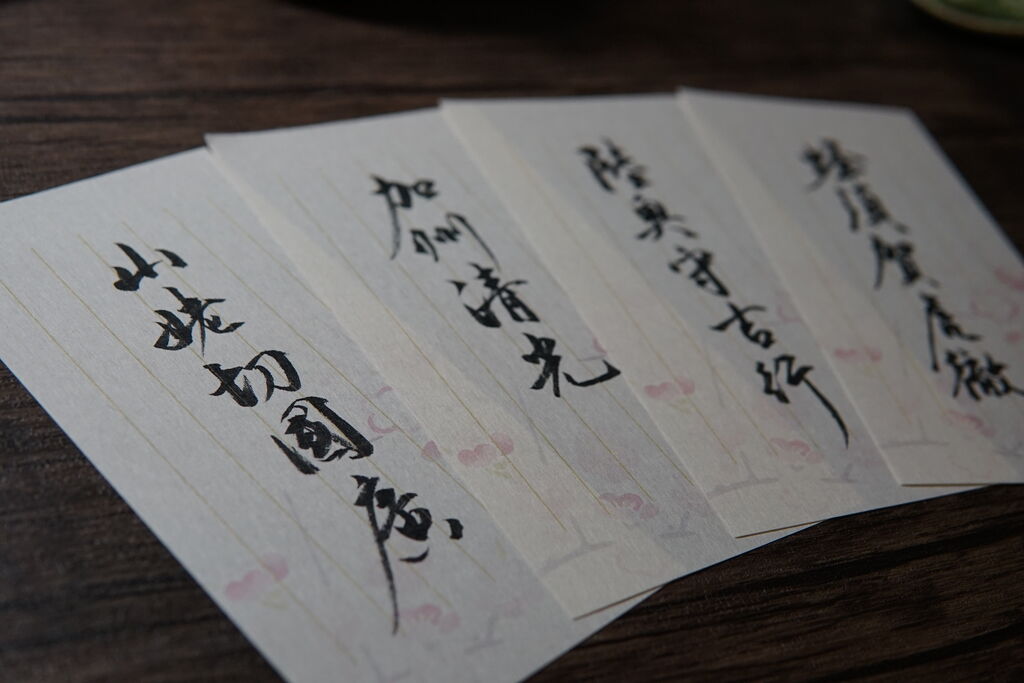 山姥切國廣
加州清光
陸奥守吉行
蜂須賀虎徹